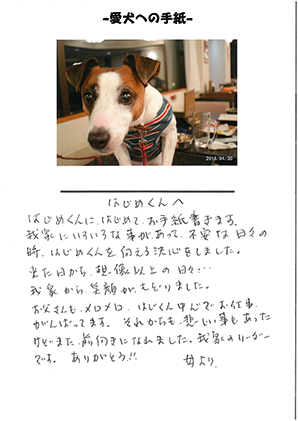 -愛犬への手紙-
2018/04/30
はじめくんへ
はじめくんに、はじめて、お手紙書きます。
我家にいろいろな事があって、不安な日々の
時、はじめくんを向える決心をしました。
来た日から、想像以上の日々…
我家から、笑顔が、もどりました。
お父さんも、メロメロ、はじくん中心でお仕事
がんばってます。それからも、悲しい事もあった
けどまた、前向きになれました。我家のリーダー
です。ありがとう!!
母より